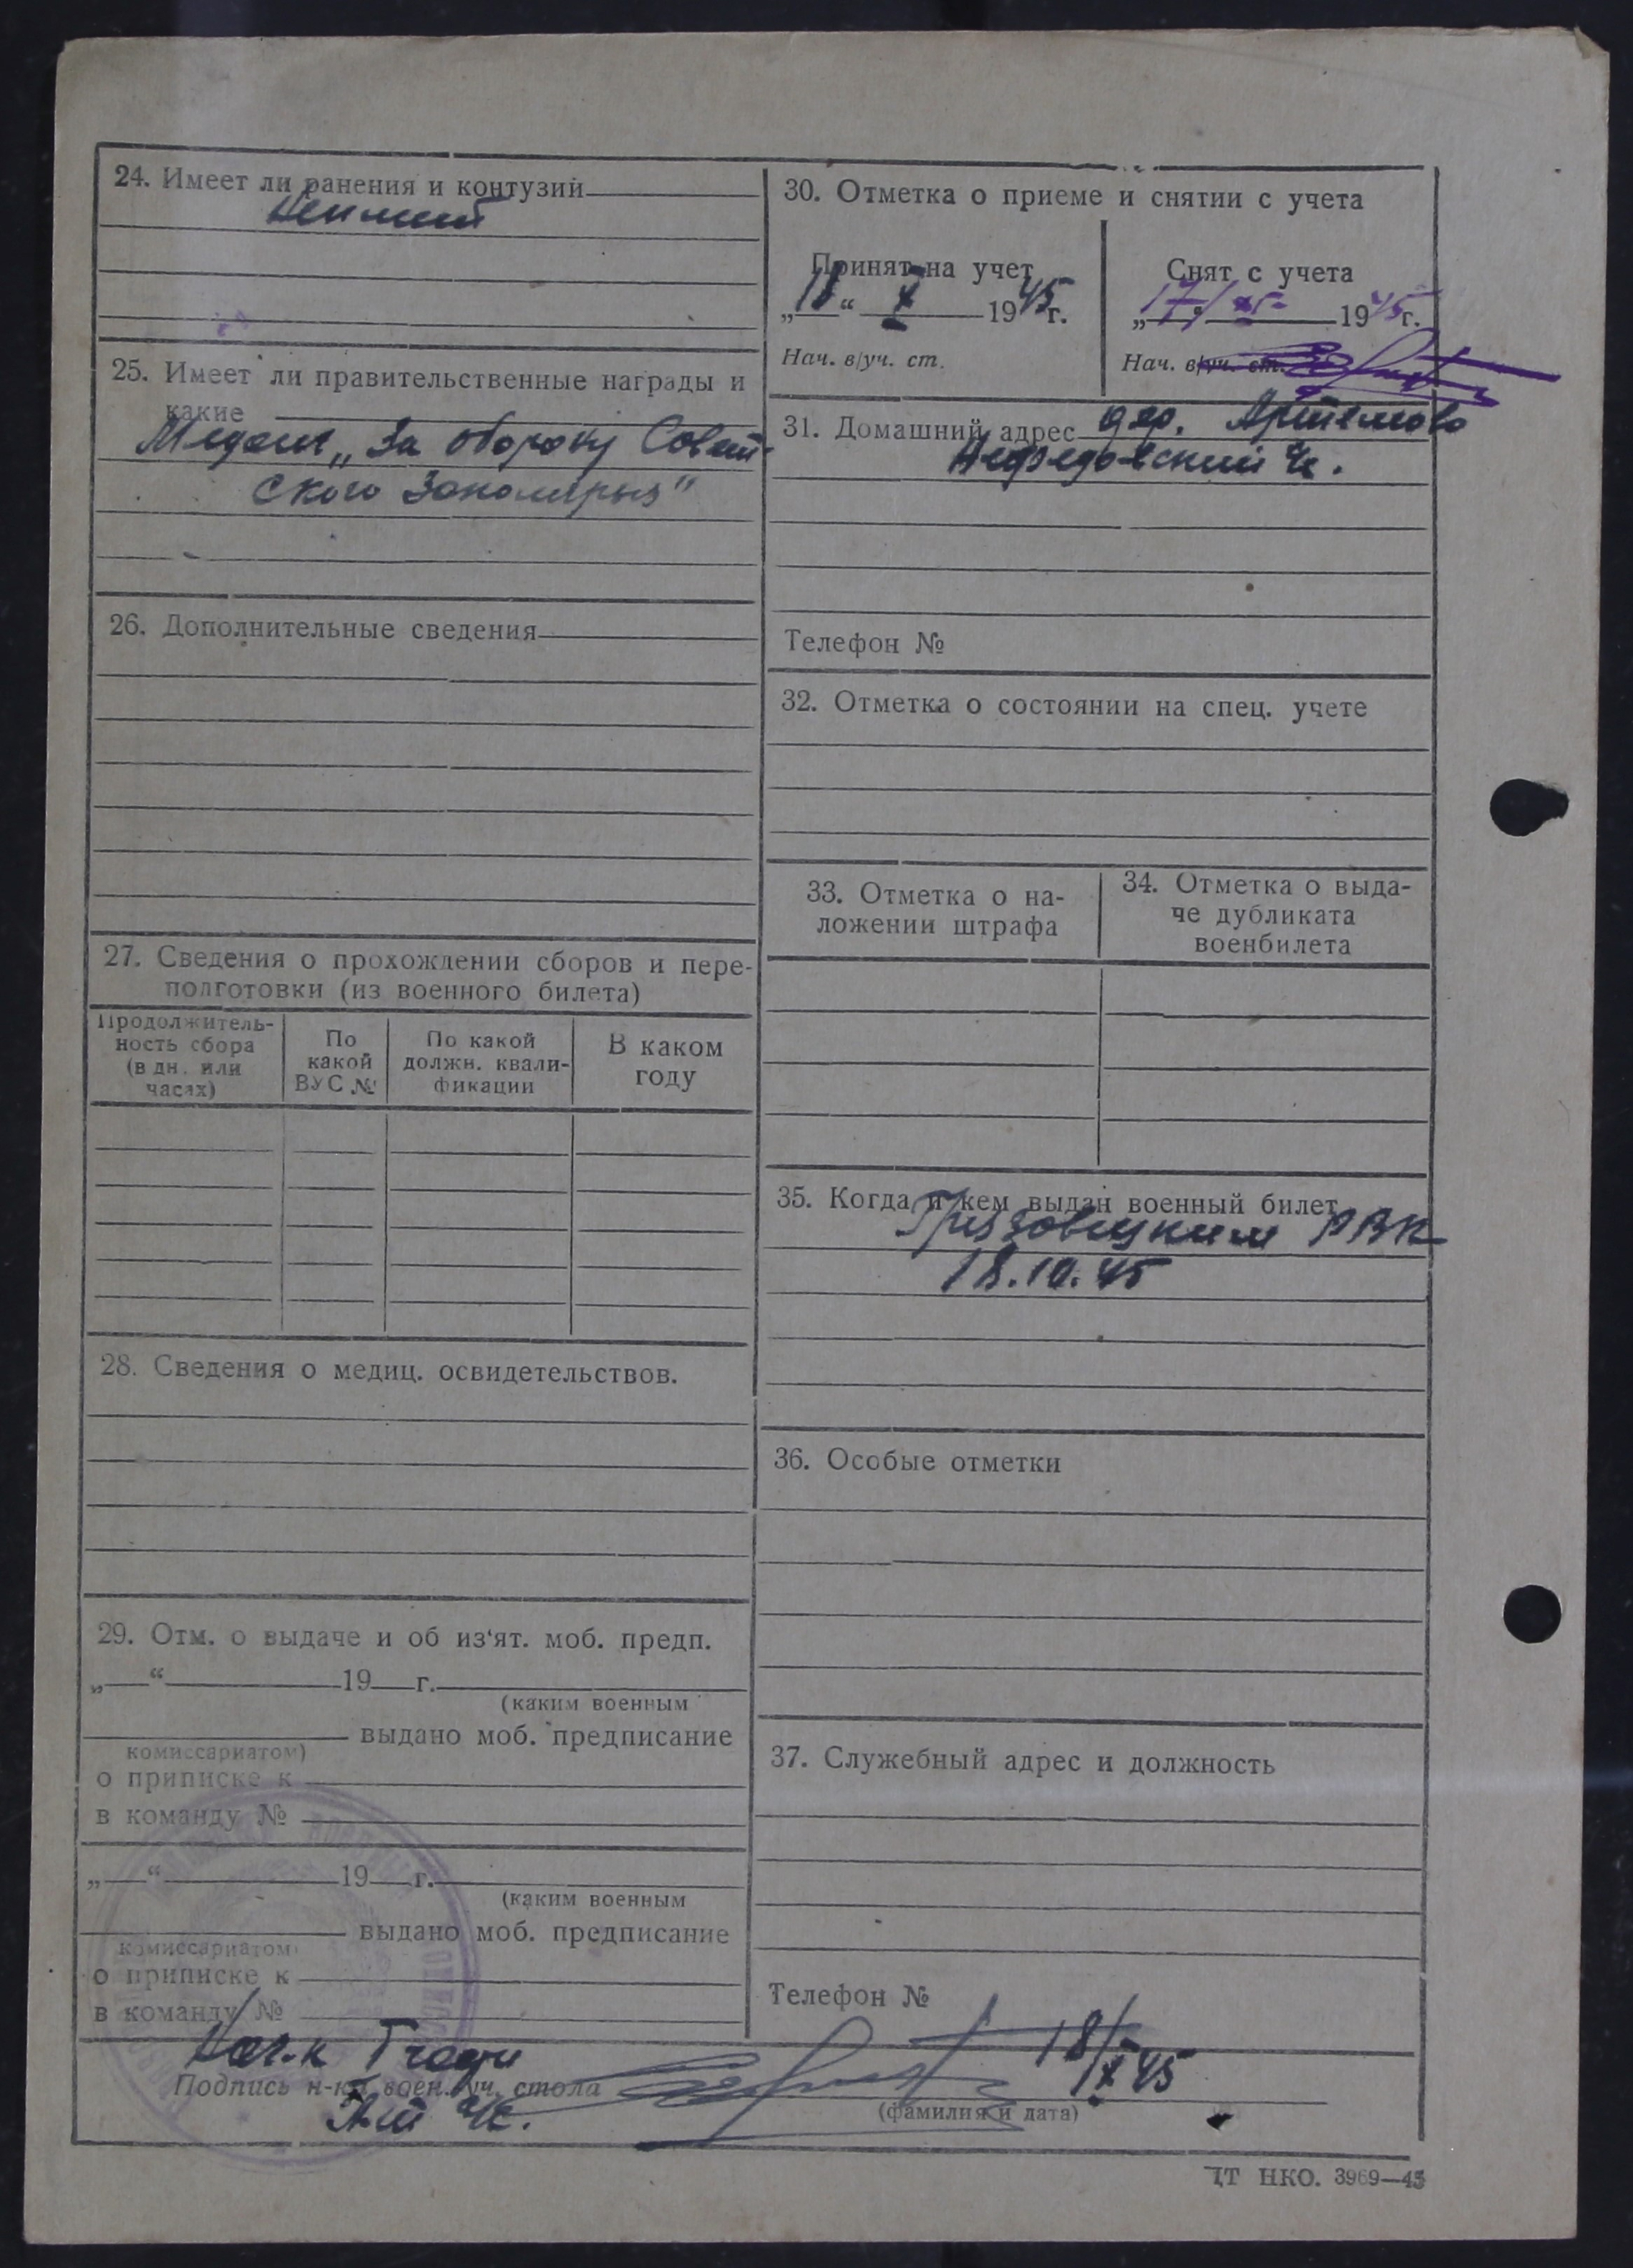 24. Имеет ли ранения и контузий
Не имеет
25. Имеет ли правительственные награды и
какие
Медаль „За оборону Совет-
ского Заполярья"
26. Дополнительные сведения
27. Сведения о прохождении сборов и пере-
подготовки (из военного билета)
Продолжитель-
ность сбора
(в дн. или
часах)
По
какой
ВУС №
По какой
должн. квали-
фикации
В каком
году
28. Сведения о медиц. освидетельствов.
29. Отм. о выдаче и об из'ят. моб. предп.
„ “ 19 г.
(каким военным
выдано моб. предписание
комиссариатом)
о приписке к
в команду №
„ “ 19 г.
(каким военным
выдано моб. предписание
комиссариатом)
о приписке к
в команду №
30. Отметка о приеме и снятии с учета
Принят на учет
„18“ X 1945 г.
Нач. в/уч. ст.
Снят с учета
1945 г.
Нач. в/уч. ст.
31. Домашний адрес дер. Артемово
Телефон №
32. Отметка о состоянии на спец. учете
33. Отметка о на-
ложении штрафа
34. Отметка о выда-
че дубликата
военбилета
35. Когда и кем выдан военный билет
Грязовецким РВК
18.10.45
36. Особые отметки
37. Служебный адрес и должность
Телефон №
18/X 45
Подпись н-ка воен. уч. стола
(фамилия и дата)
ЦТ НКО. 3969—45